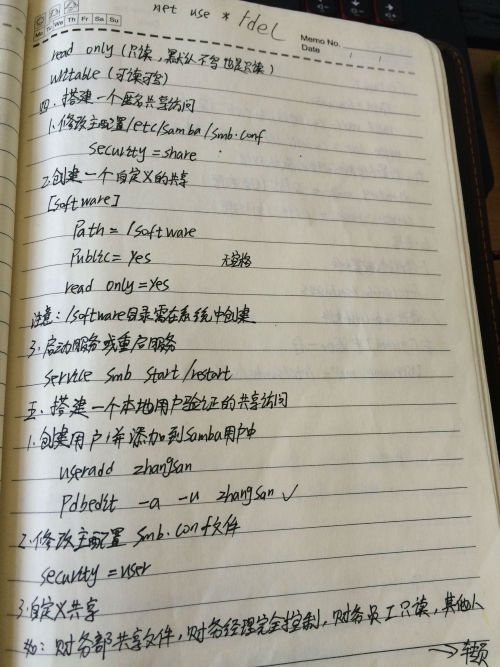 Mo Tu We Th Fr Sa Su
net use * /del
Memo No.
Date / /
read only (只读，默认不写也是只读)
writable (可读可写)
四、搭建一个匿名共享访问
1、修改主配置/etc/samba/smb.conf
security = share
2、创建一个自定义的共享
[software]
Path = /software
Public = Yes 无空格
read only = Yes
注意：/software目录需在系统中创建
3、启动服务或重启服务
service smb start/restart
五、搭建一个本地用户验证的共享访问
1、创建用户并添加到samba用户中
useradd zhangsan
Pdbedit -a -u zhangsan ✓
2、修改主配置 smb.conf文件
security = user
3、自定义共享
如：财务部共享文件，财务经理完全控制，财务员工只读，其他人
→转页